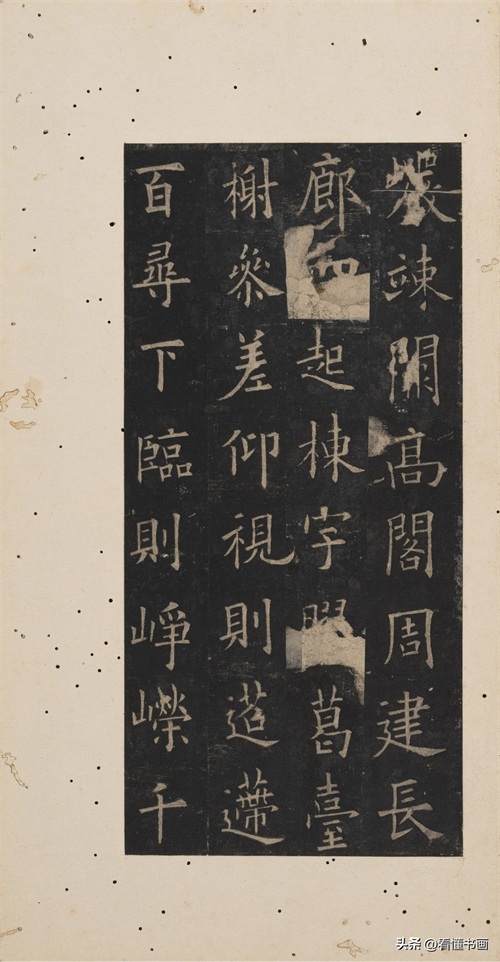 竦闕高閣周建長
廊四起棟宇葛臺
榭叅差仰視則迢遰
百尋下臨則崢嶸千
头条 @看懂书画